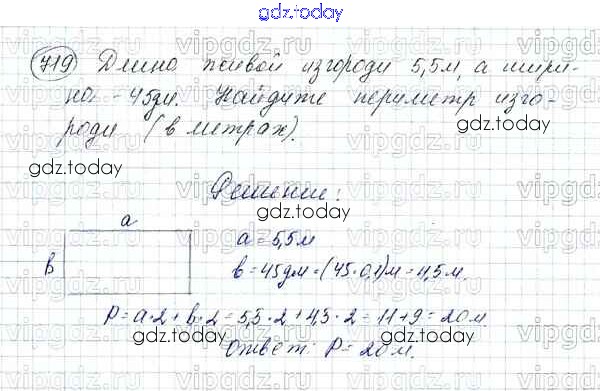 gdz.today
719 Длина живой изгороди 5,5м, а шири-
на - 45дм. Найдите периметр изго-
роди (в метрах).
gdz.today
gdz.today
Решение:
gdz.today
a
a = 5,5м
в
в = 45дм = (45·0,1)м = 4,5м.
P = a·2 + b·2 = 5,5·2 + 4,5·2 = 11+9 = 20м.
gdz.today
gdz.today
Ответ: P = 20м.